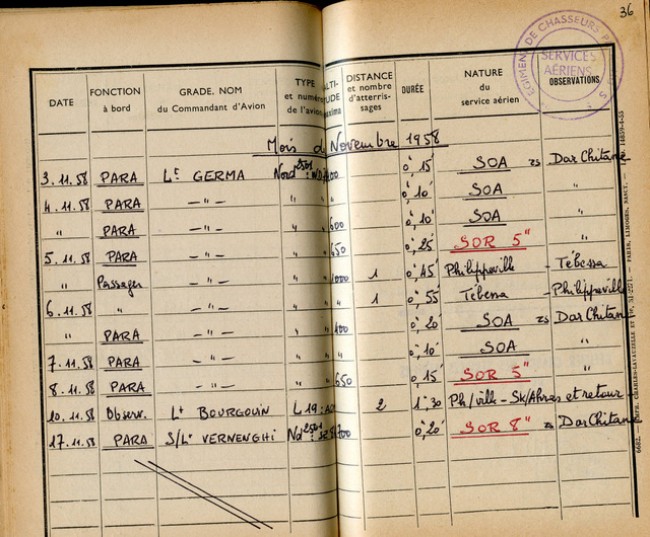 36
REGIMENT DE CHASSEURS P
SERVICES AÉRIENS
DATE FONCTION à bord GRADE, NOM du Commandant d'Avion TYPE et numéro de l'avion ALTI- TUDE maxima DISTANCE et nombre d'atterris- sages DURÉE NATURE du service aérien OBSERVATIONS
Mois de Novembre 1958
3.11.58 PARA Lt GERMA Nord 2501 400 0,15 SOA zs Dar Chitane
4.11.58 PARA —"— " " " 0,10 SOA "
" PARA —"— " " 600 0,10 SOA "
5.11.58 PARA —"— " " 650 0,25 SOR 5" "
" Passager —"— " " 1000 1 0,45 Philippeville - Tébessa
6.11.58 " —"— " " " 1 0,55 Tébessa - Philippeville
" PARA —"— " " 400 0,20 SOA zs Dar Chitane
7.11.58 PARA —"— " " " 0,10 SOA "
8.11.58 PARA —"— " " 650 0,15 SOR 5" "
10.11.58 Observ. Lt BOURGOUIN L19 2 1,30 Ph/ville - Sk/Ahras et retour -
17.11.58 PARA S/Lt VERNENGHI Nd 2501 700 0,20 SOR 8" zs Dar Chitane
CHARLES-LAVAUZELLE ET Cie PARIS, LIMOGES, NANCY.